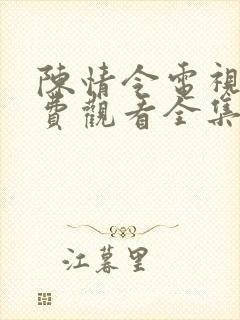 陳情令電視
費觀看全集
江暮里